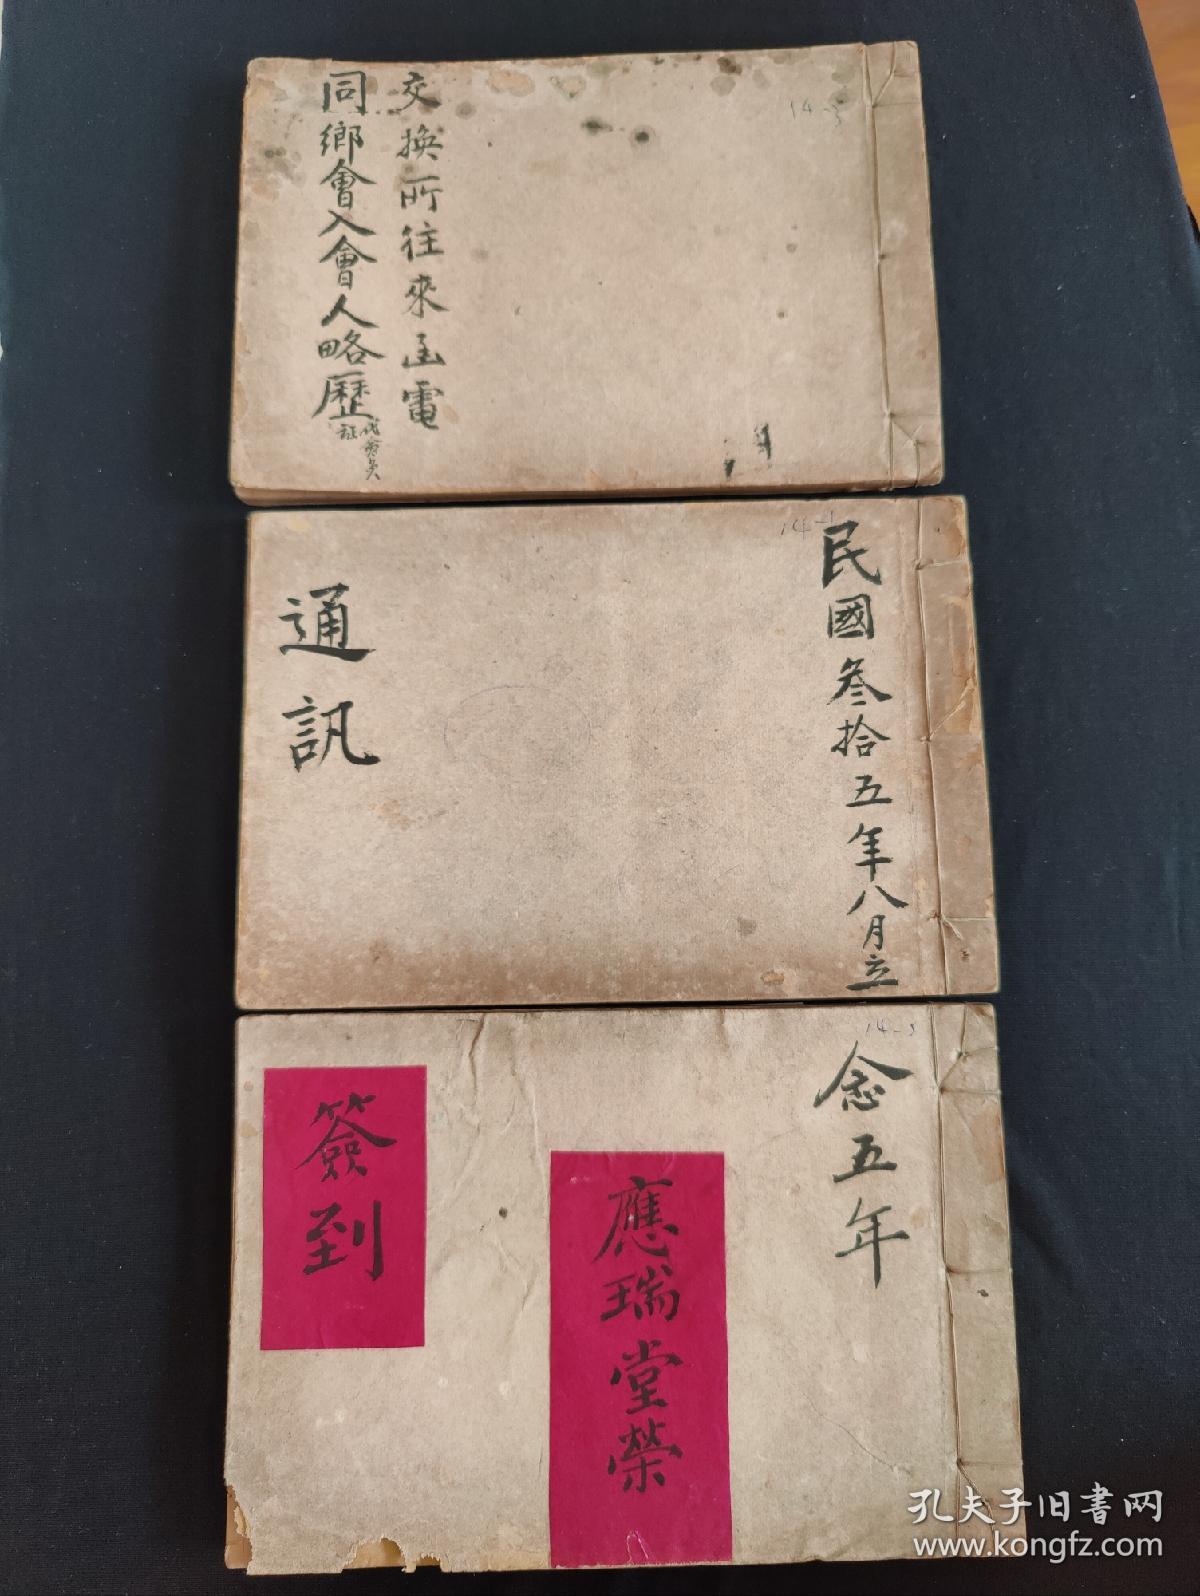 14-3
交換所往來函電
同鄉會入會人略歷
民國叄拾五年八月立
通訊
念五年
應瑞堂榮
簽到
孔夫子旧书网
www.kongfz.com